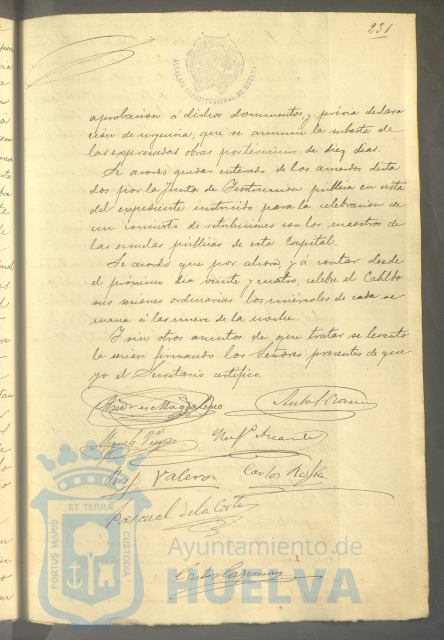 231
ALCALDIA CONSTITUCIONAL DE HUELVA
aprobacion á dichos documentos y prévia declara
cion de urgencia, que se anuncie la subasta de
las expresadas obras por término de diez dias.
Se acordó quedar enterado de los acuerdos dicta
dos por la Junta de Instruccion pública en vista
del expediente instruido para la celebracion de
un concierto de retribuciones con los maestros de
las escuelas públicas de esta Capital.
Se acordó que por ahora, y á contar desde
el próximo dia veinte y cuatro, celebre el Cabildo
sus sesiones ordinarias los miércoles de cada se
mana á las nueve de la noche.
Y sin otros asuntos de que tratar se levantó
la sesion firmando los Señores presentes de que
yo el Secretario certifico.
Valero
Carlos
Pascual de la Corte
PORTUS MARIS ET TERRAE CUSTODIA
Ayuntamiento de
HUELVA